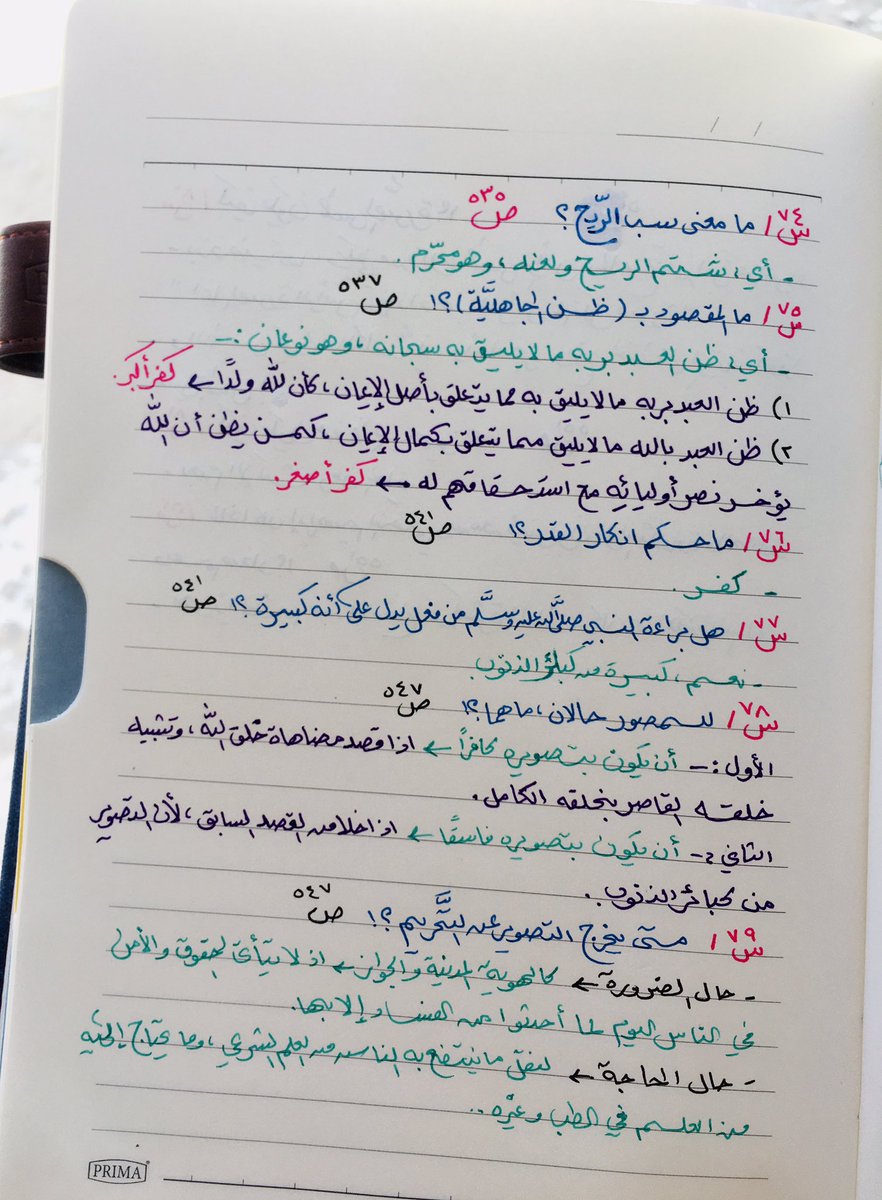 س٧٤/ ما معنى سب الرّيح؟ ص٥٣٥
- أي: شتم الريح ولعنه، وهو محرّم.
س٧٥/ ما المقصود بـ (ظن الجاهليَّة)؟! ص٥٣٧
- أي: ظن العبد بربه ما لا يليق به سبحانه، وهو نوعان:-
١) ظن العبد بربه ما لا يليق به مما يتعلق بأصل الإيمان، كأن لله ولدًا ← كفر أكبر.
٢) ظن العبد بالله ما لا يليق مما يتعلق بكمال الإيمان، كمن يظن أن الله
يؤخر نصر أوليائه مع استحقاقهم له ← كفر أصغر.
س٧٦/ ما حكم انكار القدر؟! ص٥٤١
- كفر.
س٧٧/ هل براءة النبي صلَّى الله عليه وسلَّم من فعل يدل على كأنه كبيرة؟! ص٥٤١
- نعم، كبيرة من كبائر الذنوب
س٧٨/ للمصور حالان، ما هما؟! ص٥٤٧
الأول:- أن يكون بتصويره كافراً ← اذا قصد مضاهاة خلق الله، وتشبيه
خلقه القاصر بخلقه الكامل.
الثاني:- أن يكون بتصويره فاسقًا ← اذا خلا من القصد السابق، لأن التصوير
من كبائر الذنوب.
س٧٩/ متى يخرج التصوير عن التَّحريم؟! ص٥٤٧
- حال الضرورة ← كالهوية المدنية والجواز ← اذ لا يتأتى الحقوق والأمن
في الناس اليوم لما أحدثوا من الفساد إلا بها.
- حال الحاجة ← لنقل ما ينتفع به الناس من العلم الشرعي، وما يحتاج إليه
من العلم في الطب وغيره..
PRIMA